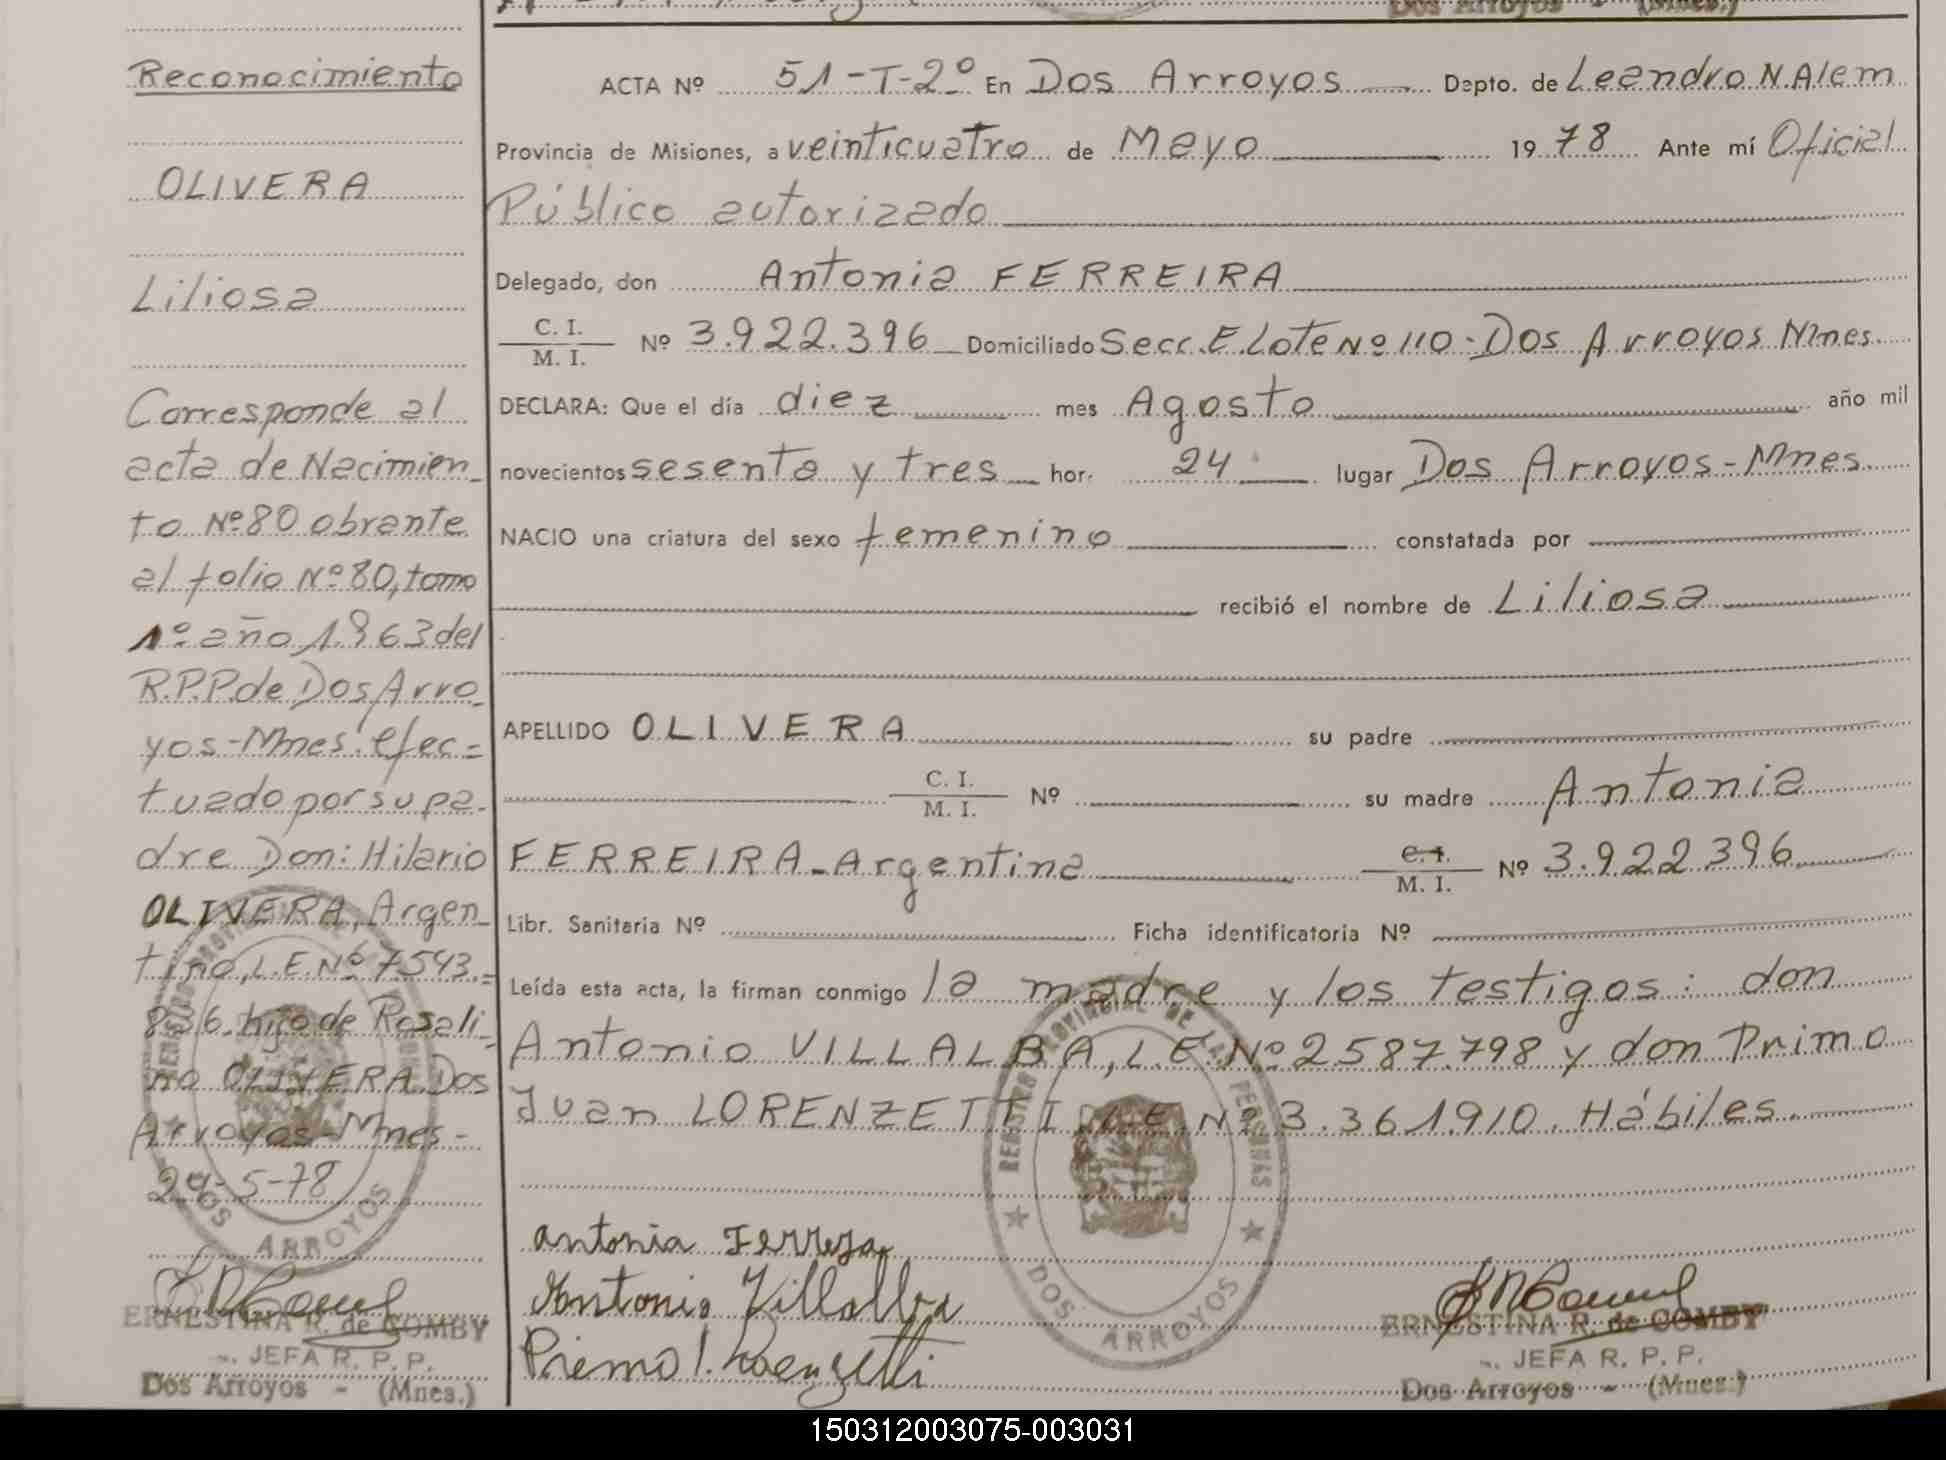 Dos Arroyos - (Mnes.)
Reconocimiento
OLIVERA
Liliosa
Corresponde al
acta de Nacimien_
to Nº 80 obrante
al folio Nº 80, tomo
1º año 1963 del
R.P.P. de Dos Arro_
yos-Mnes. efec=
tuado por su pa-
dre Don: Hilario
OLIVERA, Argen_
tino, L.E. Nº 7543.=
836. hijo de Rosali_
no OLIVERA. Dos
Arroyos-Mnes-
24-5-78
ERNESTINA R. de COMBY
JEFA R. P. P.
Dos Arroyos - (Mnes.)
ACTA Nº 51-T-2º En Dos Arroyos Depto. de Leandro N. Alem
Provincia de Misiones, a veinticuatro de Mayo 1978 Ante mí Oficial
Público autorizado
Delegado, don Antonia FERREIRA
C. I.
M. I. Nº 3.922.396 Domiciliado Secc. E. Lote Nº 110-Dos Arroyos Mnes.
DECLARA: Que el día diez mes Agosto año mil
novecientos sesenta y tres hor. 24 lugar Dos Arroyos-Mnes.
NACIO una criatura del sexo femenino constatada por
recibió el nombre de Liliosa
APELLIDO OLIVERA su padre
C. I.
M. I. Nº su madre Antonia
FERREIRA-Argentina C. I.
M. I. Nº 3.922396
Libr. Sanitaria Nº Ficha identificatoria Nº
Leída esta acta, la firman conmigo la madre y los testigos: don
Antonio VILLALBA, L.E. Nº 2587.798 y don Primo
Juan LORENZETTI L.E. Nº 3.361.910. Hábiles.
REGISTRO PROVINCIAL DE LAS PERSONAS
DOS ARROYOS
antonia Ferrera
Antonio Villalba
Primo J. Lorenzetti
ERNESTINA R. de COMBY
JEFA R. P. P.
Dos Arroyos - (Mnes.)
150312003075-003031